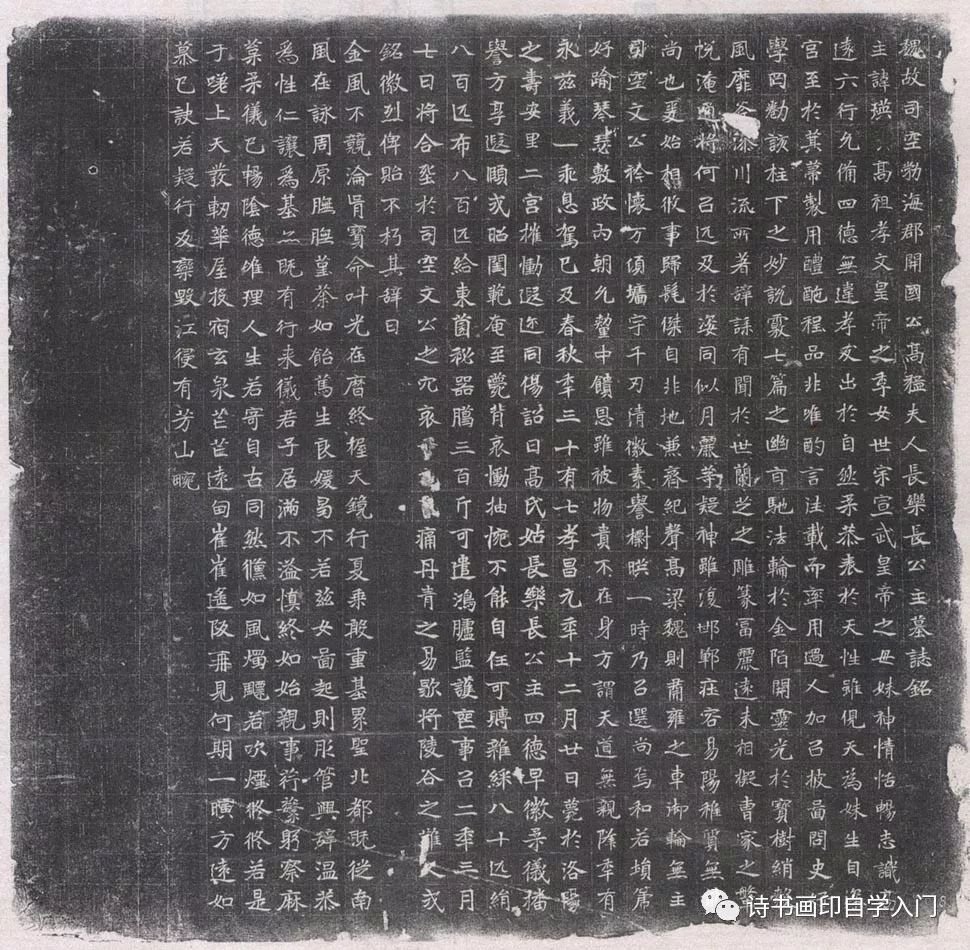 魏故司空勃海郡開國公高猛夫人長樂長公主墓誌銘
主諱瑛高祖孝文皇帝之季女世宗宣武皇帝之母妹神情恬暢志識高
遠六行允備四德無違孝友出於自然柔恭表於天性雖俔天為妹生自深
宮至於箕帚製用醴酏程品非唯酌言注載而率用過人加㠯披啚問史好
學罔勌該柱下之妙說覈七篇之幽旨馳法輪於金陌開靈光於寶樹綃縠
風靡谷停川流所著辭誄有聞於世蘭芝之雕篆富麗遠未相擬曹家之警
悅淹通將何㠯匹及於姿同似月麗等疑神雖復邯鄲莊容易陽稚質無
尚也爰始相攸事歸髦傑自非地兼齊紀聲高梁魏則肅雍之車御輪無主
司空文公衿懷万頃墻宇千刃情徽素譽樹映一時乃㠯選尚焉和若塤篪
好踰琴瑟敷政內朝允釐中饋恩雖被物貴不在身方謂天道無親降年有
永茲義一乖息駕已及春秋年三十有七孝昌元年十二月廿日薨於洛陽
之壽安里二宮摧慟遐迩同傷詔曰高氏姑長樂長公主四德早徽柔儀播
譽方享遐頤式昭閨範奄至薨背哀慟抽惋不能自任可賻雜綵八十匹絹
八百匹布八百匹給東園秘器臈三百斤可遣鴻臚監護喪事㠯二年三月
七日將合塟於司空文公之穴哀 痛丹青之易歇將陵谷之難久式
銘徽烈俾貽不朽其辭曰
金風不競淪胥寶命叶光在曆終握天鏡行夏乘殷重基累聖北都既從南
風在詠周原膴膴堇荼如飴篤生良媛曷不若茲女啚起則肜管興辭溫恭
為性仁讓為基亦既有行来儀君子居滿不溢慎終如始親事蘋蘩躬察麻
菒柔儀已暢陰德唯理人生若寄自古同然儵如風燭飃若吹煙悠悠若是
于嗟上天發軔華屋投宿玄泉芒芒遠甸崔崔遙阪再見何期一曠方遠如
慕已訣若疑行反欒毀江侵有芳山畹
诗书画印自学入门